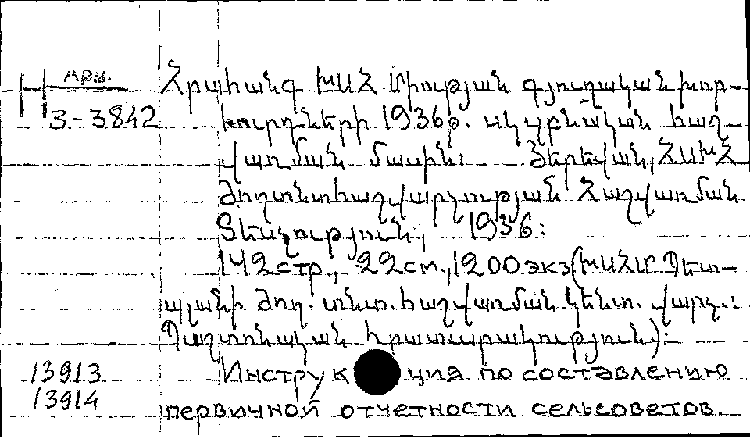 Арм.
3-3842
Հրահանգ ԽՍՀ Միության գյուղական խոր-
հուրդների 1936թ. սկզբնական հաշ-
վառման մասին: Յերեվան, ՀՍԽՀ
Ժողտնտհաշվարչության Հաշվառման
Տեսչություն, 1936:
142стр., 22см., 1200экз (ԽՍՀՄ Պետ-
պլանի ժող. տնտ. հաշվառման կենտ. վարչ.:
Պաշտոնական հրատարակություն):
13913 Инструкция по составлению
13914 первичной отчетности сельсоветов